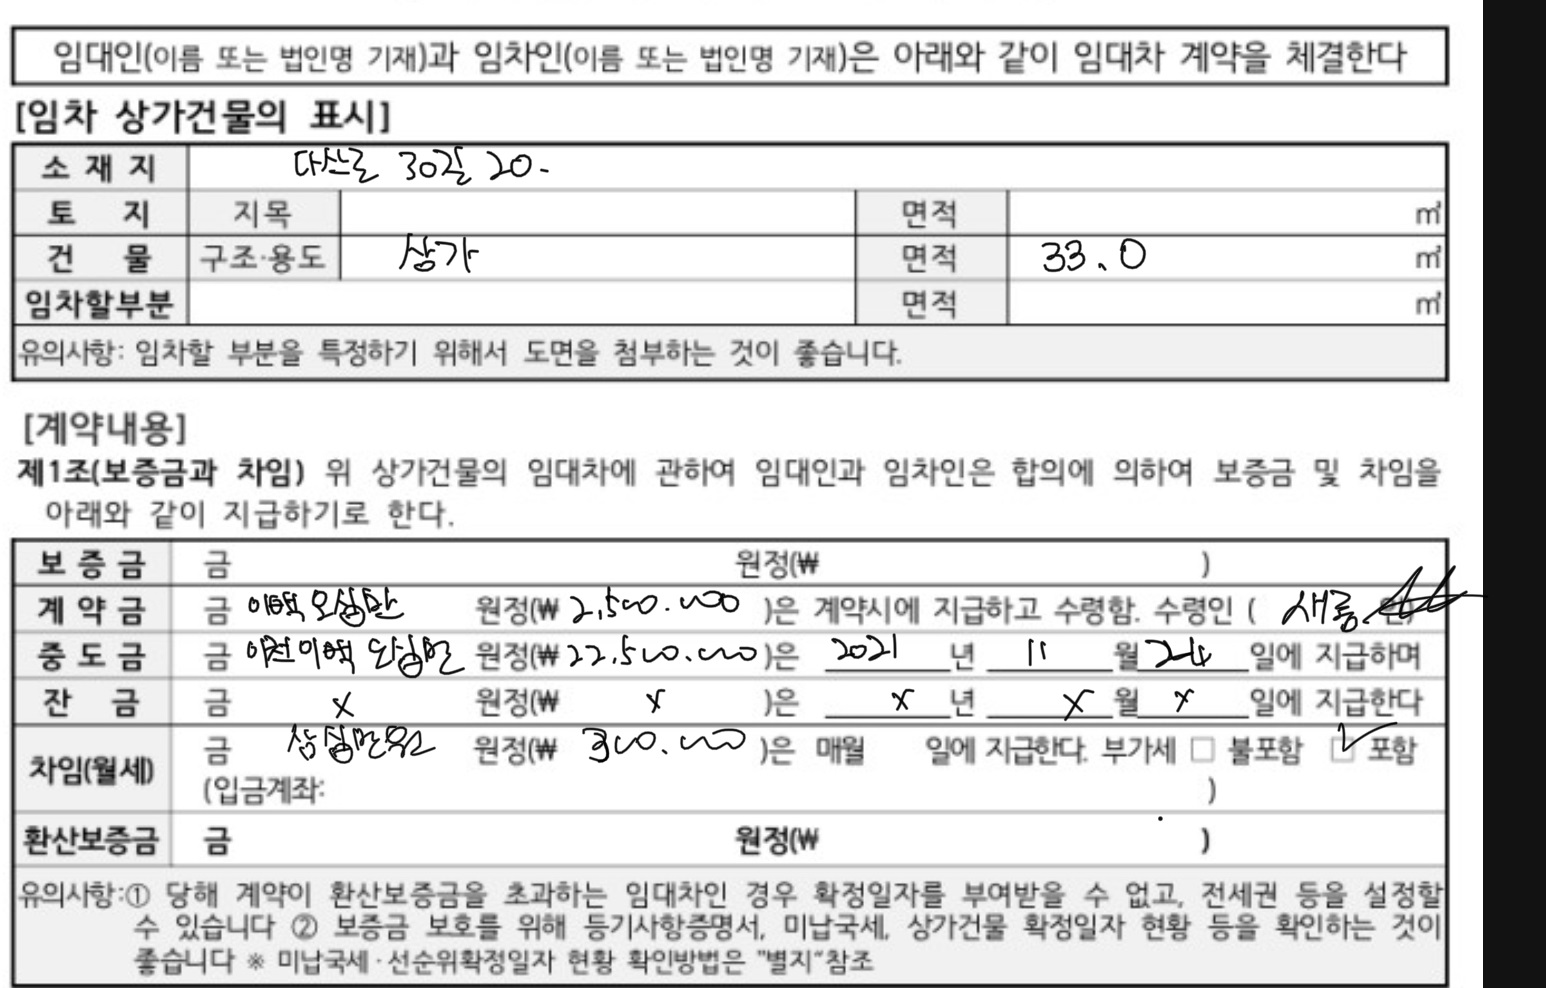 임대인(이름 또는 법인명 기재)과 임차인(이름 또는 법인명 기재)은 아래와 같이 임대차 계약을 체결한다
[임차 상가건물의 표시]
소 재 지 다산로 30길 20.
토 지 지목 면적 ㎡
건 물 구조·용도 상가 면적 33.0 ㎡
임차할부분 면적 ㎡
유의사항: 임차할 부분을 특정하기 위해서 도면을 첨부하는 것이 좋습니다.
[계약내용]
제1조(보증금과 차임) 위 상가건물의 임대차에 관하여 임대인과 임차인은 합의에 의하여 보증금 및 차임을
아래와 같이 지급하기로 한다.
보 증 금 금 원정(₩ )
계 약 금 금 이백오십만 원정(₩ 2,500.000 )은 계약시에 지급하고 수령함. 수령인 ( 인)
중 도 금 금 이천이백 원정(₩ 22.500.000 )은 2021 년 11 월 24 일에 지급하며
잔 금 금 x 원정(₩ x )은 x 년 x 월 x 일에 지급한다
차임(월세) 금 삼십만원 원정(₩ 300.000 )은 매월 일에 지급한다. 부가세 □ 불포함 ☑ 포함
(입금계좌: )
환산보증금 금 원정(₩ )
유의사항:① 당해 계약이 환산보증금을 초과하는 임대차인 경우 확정일자를 부여받을 수 없고, 전세권 등을 설정할
수 있습니다 ② 보증금 보호를 위해 등기사항증명서, 미납국세, 상가건물 확정일자 현황 등을 확인하는 것이
좋습니다 ※ 미납국세·선순위확정일자 현황 확인방법은 "별지"참조